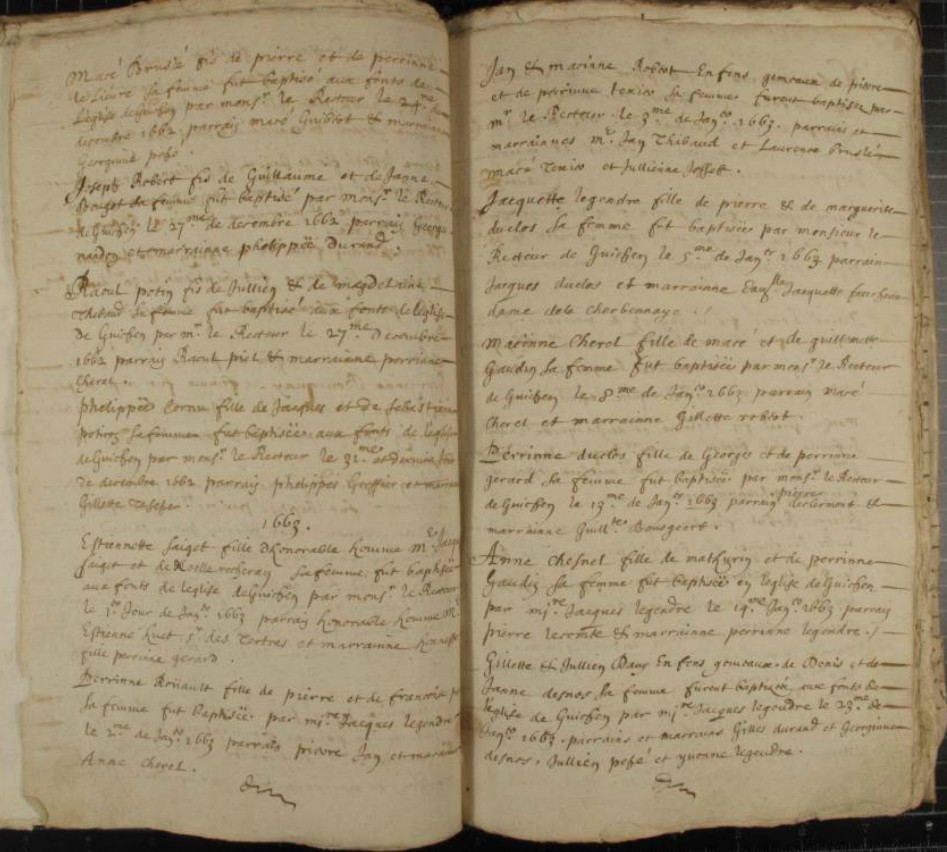 Macé Bruslé fis de pierre et de perrinne
le Lieure sa femme fut baptisé aux fonts de
Leglise de Guichen par monsr le Recteur le 24me de
decembre 1662 parrain macé Guiblot & marrainne
Georginne
Joseph Robert fis de Guillaume et de Janne
Bougot sa femme fut baptisé par monsr le Recteur
de Guichen le 27me de decembre 1662 parrain
et marrainne phelippës Durand.
Raoul potin fis de Jullien & de magdelainne
Thebaud sa femme fut baptisé aux fonts de leglise
de Guichen par mr le Recteur le 27me Decembre
1662 parrain Raoul piel & marrainne perrinne
Cherel.
phelippës Cornu fille de Jacques et de Sebastienne
potiron sa femme fut baptisée aux fonts de leglise
de Guichen par monsr le Recteur le 31me et dernier Jour
de decembre 1662 parrain phelippes Greffier et
Gillette
1663.
Estiennette Saiget fille dhonorable homme Mr
saiget et de Noelle sa femme, fut baptisée
aux fonts de leglise de Guichen par monsr le Recteur
le 1er Jour de Janer 1663 parrain honorable homme
Estienne huet sr des Tertres et marrainne
fille perrinne gerard.
Perrinne Renault fille de pierre et de francoise
sa femme fut baptisée par misre Jacques legendre
le 2me de Janer 1663 parrain pierre Jan et
Anne cherel.
Jan & macinne Robert Enfens gemeaux de pierre
et de perrinne texier sa femme furent baptisez par
mr le Recteur le 3me de Janer 1663. parrains et
marrainnes mr Jan Thibaud et Laurence Bruslé
macé Texier et Jullienne Josset.
Jacquette legendre fille de pierre & de marguerite
duclos sa femme fut baptisée par monsieur le
Recteur de Guichen le 5me de Janer 1663 parrain
Jacques duclos et marrainne damlle Jacquette
dame de la Cherbonnaye
macinne Cherel fille de macé et de guillemette
Gaudin sa femme fut baptisée par monsr le Recteur
de Guichen le 8me de Janer 1663 parrain macé
Cherel et marrainne Gillette roblot.
Perrinne duclos fille de Georges et de perrinne
gerard sa femme fut baptisée par monsr le Recteur
de Guichen le 13me de Janer 1663 parrain pierre declermont &
marrainne Guillte Bourgeert.
Anne Chesnel fille de mathurin et de perrinne
Gaudin sa femme fut baptisée en leglise de Guichen
par misre Jacques legendre le 19me Janer 1663 parrain
pierre lecomte & marrainne perrinne legendre.
Gillette & Jullien Daux Enfens gemeaux de Denis et de
Janne desnos sa femme furent baptisés aux fonts de
leglise de Guichen par misre Jacques legendre le 23me de
Janer 1663. parrains et marrains Gilles durand et Georginne
desnos. Jullien pepé et yvonne legendre.